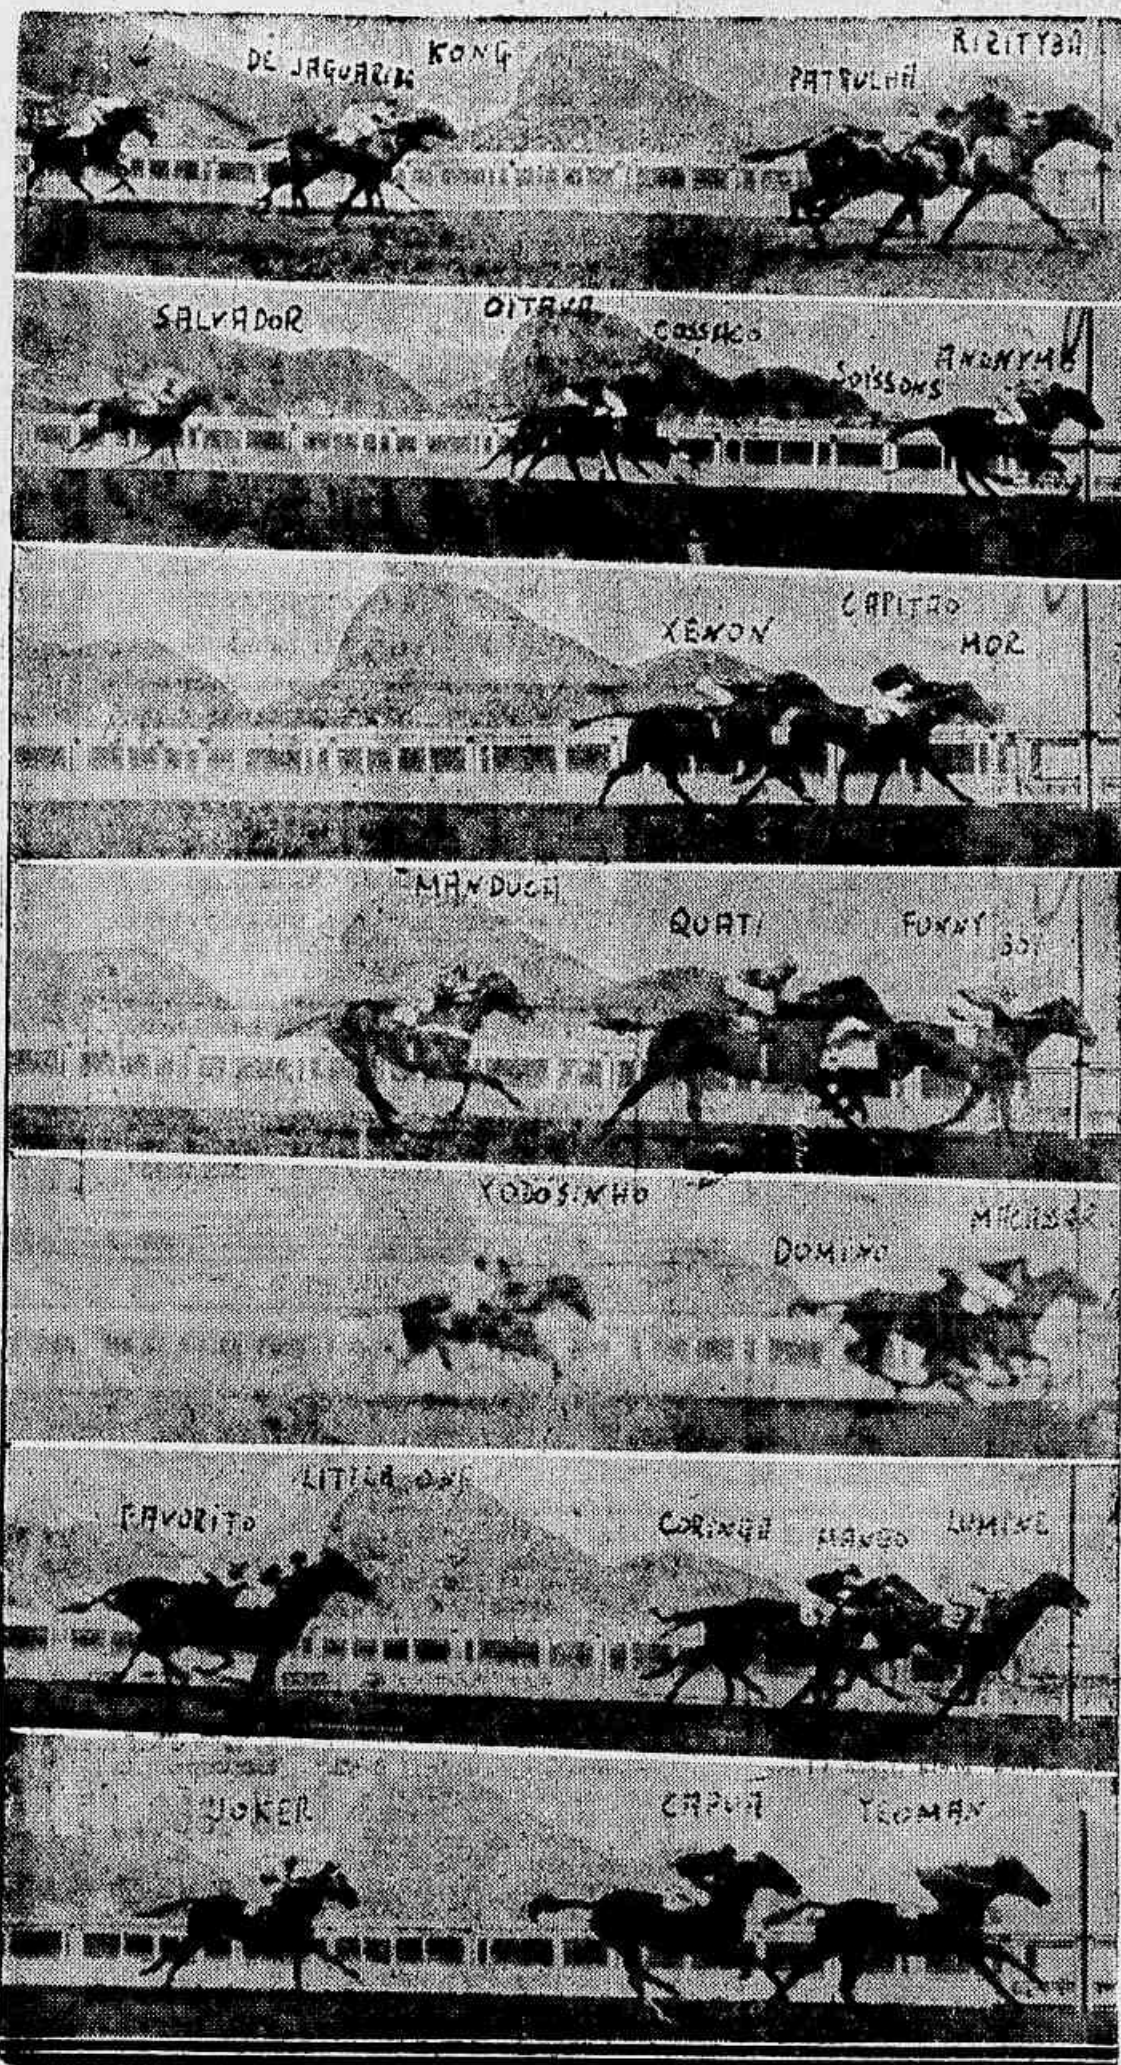 DE JAGUARIBE KONG PATRULHA RIRITYBA
SALVADOR OITAVA COSSACO SOISSONS ANONYMO
XENON CAPITÃO MOR
MANDUCA QUATI FUNNY BOY
XODOSINHO DOMINO
FAVORITO LITTLE ONE CORINGA MANGO LUMINE
JOKER CAPUA YEOMAN